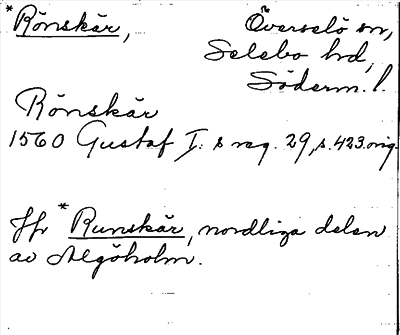 *Rönskär, Överselö sn,
Selebo hd,
Söderm. l.
Rönskär
1560 Gustaf I:s reg. 29, s. 423. orig.
Jfr *Runskär, nordliga delen
av Algöholm.